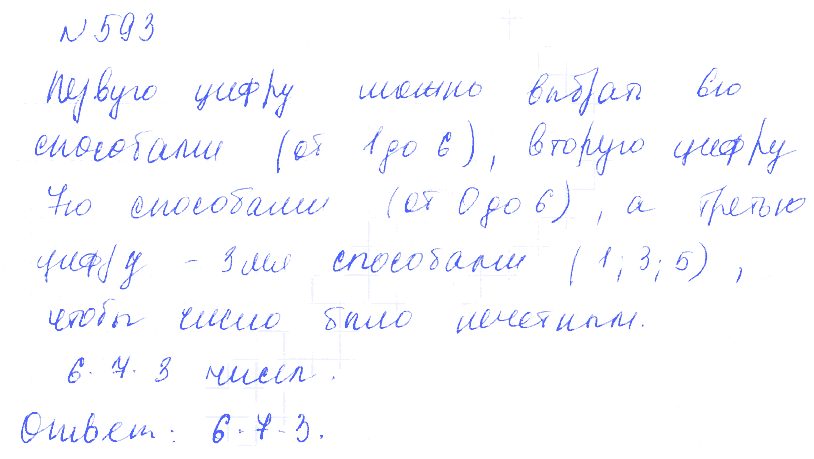 № 593
Первую цифру можно выбрать 6ю
способами (от 1 до 6), вторую цифру
7ю способами (от 0 до 6), а третью
цифру - 3мя способами (1; 3; 5),
чтобы число было нечетным.
6 · 7 · 3 чисел.
Ответ: 6 · 7 · 3.